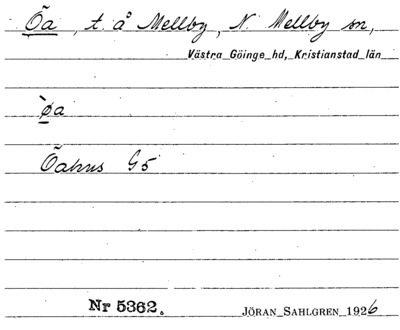 Õa, t. å Mellby, N. Mellby sn,
Västra Göinge hd, Kristianstad län
`øa
Õahus G5
Nr 5362. JÖRAN SAHLGREN 1926